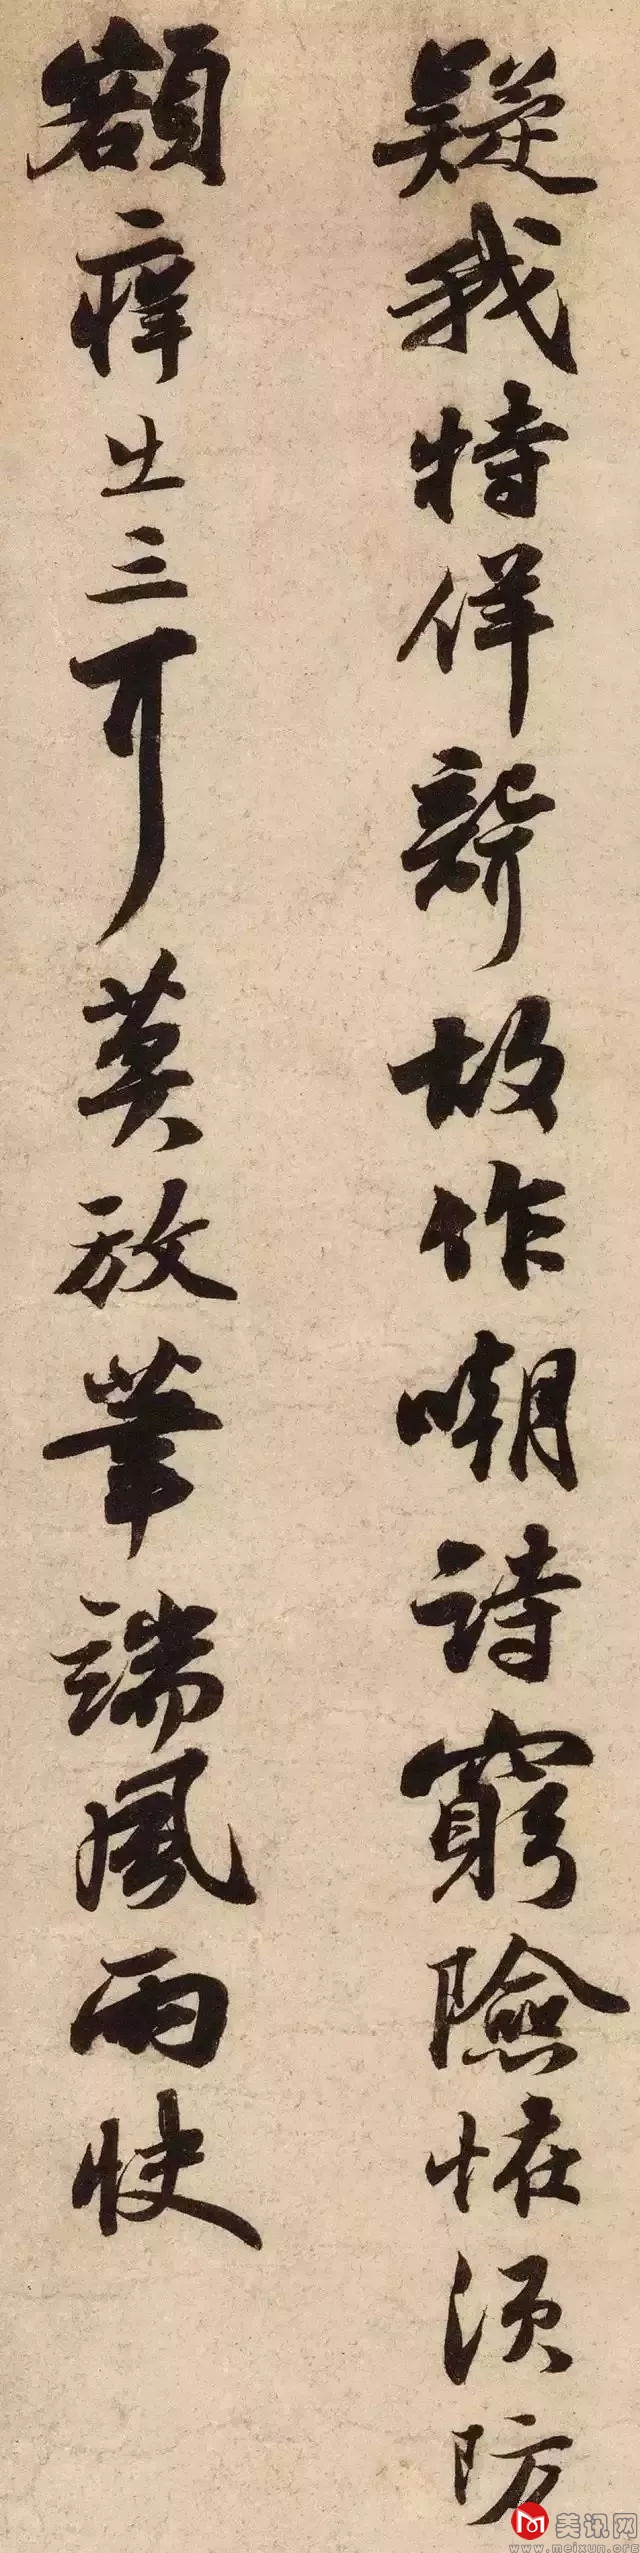 疑我特佯聾故作嘲詩窮險恠須防
額痒出三耳莫放筆端風雨快
美讯网
www.meixun.org